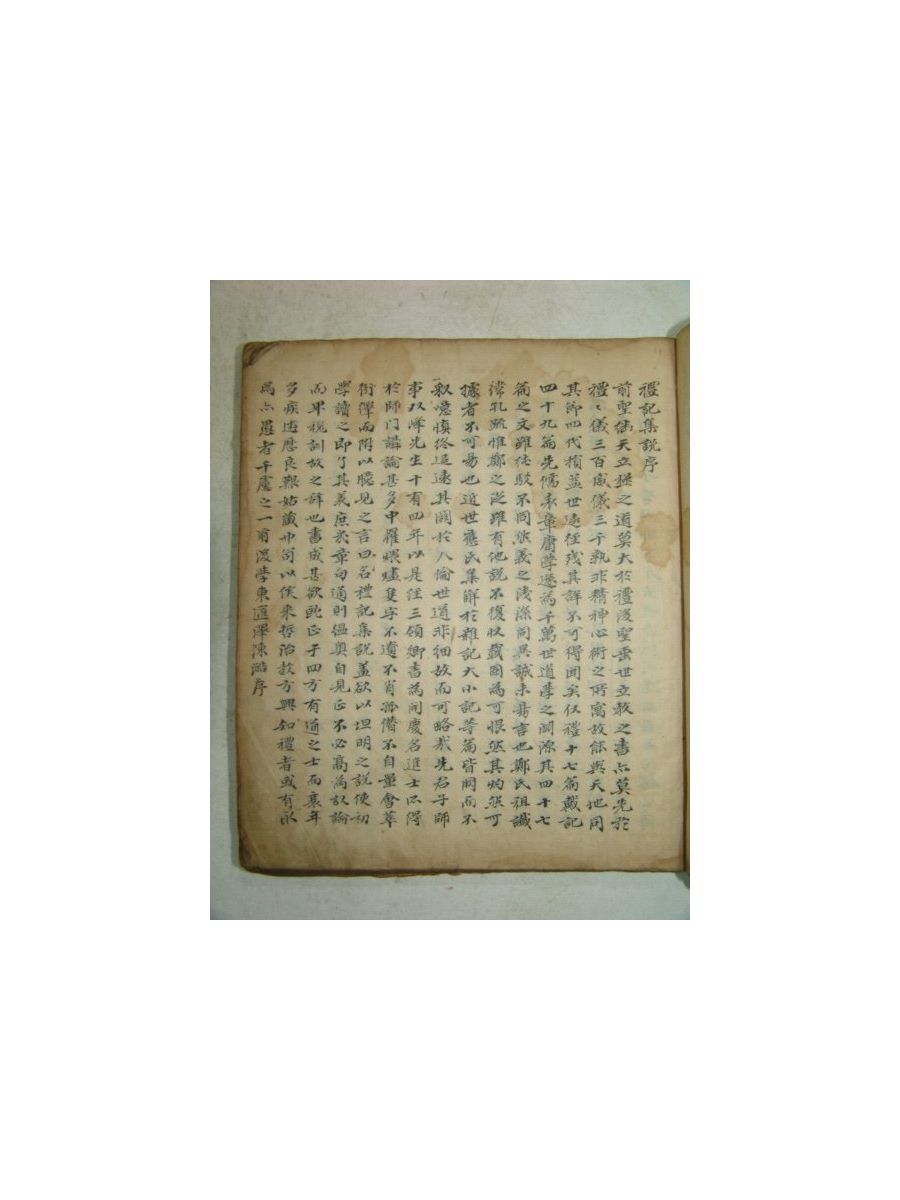 禮記集說序
前聖継天立極之道莫大於禮後聖垂世立敎之書亦莫先於
禮〻儀三百威儀三千孰非精神心術之所寓故能與天地同
其節四代損益世遠徑殘其詳不可得聞矣仪禮十七篇戴記
四十九篇先儒表章庸學遂為千萬世道學之淵源其四十七
篇之文雖純駁不同然義之淺深同異誠未易言也鄭氏祖讖
緯孔䟽惟鄭之從雖有他說不復収載固為可恨然其灼然可
據者不可易也近世應氏集解於雜記大小記等篇皆闕而不
釈噫慎終追遠其關於人倫世道非細故而可略哉先君子師
事双峰先生十有四年以是经三領卿書為開慶名進士所得
於師门講論甚多中罹煨燼隻字不遺不肖孤僣不自量會萃
衍繹而附以臆見之言曰名禮記集説盖欲以坦明之説使初
學讀之即了其義庶㡬章句通則緼奥自見正不必高為议論
而卑視訓故之辞也書成甚欲就正于四方有道之士而衰年
多疾逰歷良艱姑藏巾笥以俟来哲治敎方興知禮者或有取
焉亦愚者千慮之一爾後學東匯澤陳澔序